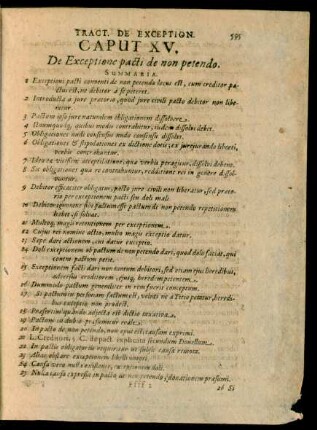 TRACT. DE EXCEPTION. 595
CAPUT XV.
De Exceptione pacti de non petendo.
SUMMARIA.
1 Exceptioni pacti conventi de non petendo locus est, cum creditor pa-
ctus est, ne debitor à se petetet.
2 Introducta a jure praetorio, quod jure civili pacto debitor non libe-
retur.
3 Pactum ipso jure naturalem obligationem dissolvere.
4 Unumquodq, quibus modis contrahitur, iisdem dissolvi debet.
5 Obligationes nudo consensu nudo consensu dissolvi.
6 Obligationes & stipulationes ex dictione dotis, ex jurejurando liberti,
verbis contrahuntur.
7 Ideo necessum acceptilatione, qua verbis peragitur, dissolvi debent.
8 Ex obligationes qua re contrahuntur, redditione rei in genere dissol-
9 Debitor efficaciter obligatur, pacto jure civili non liberatur, sed prae-
toria per exceptionem pacti seu doli mali.
10 Debitorem pacto factum esse pactum de non petendo repetitionem
habet si solvat.
11 Multos magis retentionem per exceptionem.
12 Cujus rei nomine actio, multo magis exceptio datur.
13 Sape dari actionem, cui datur exceptio.
14 Doli exceptionem ob pactum de non petendo dari, quod dolo faciat, qui
contra pactum petit.
15 Exceptionem pacti dari non tantum debitori, sed etiam ejus heredibus,
adversus creditorem, ejusq. heredem petentem.
16 Dummodo pactum generaliter in rem fuerit conceptum.
17 Si pactum in personam factum est, veluti ne à Titio petatur, heredi-
bus exceptio non prodest.
18
19 Pactum in dubio praesumi reale.
20 In pacto de non petendo, non opus est causam exprimi.
21 L. Creditori, C. de pact. explicata secundum Donellum.
22 In pactis obligatoriis
23 Alias obstare exceptionem
24 Causa vera
25 Nulla causa expressa in pacto de non petendo, donationem praesumi.
26 Si